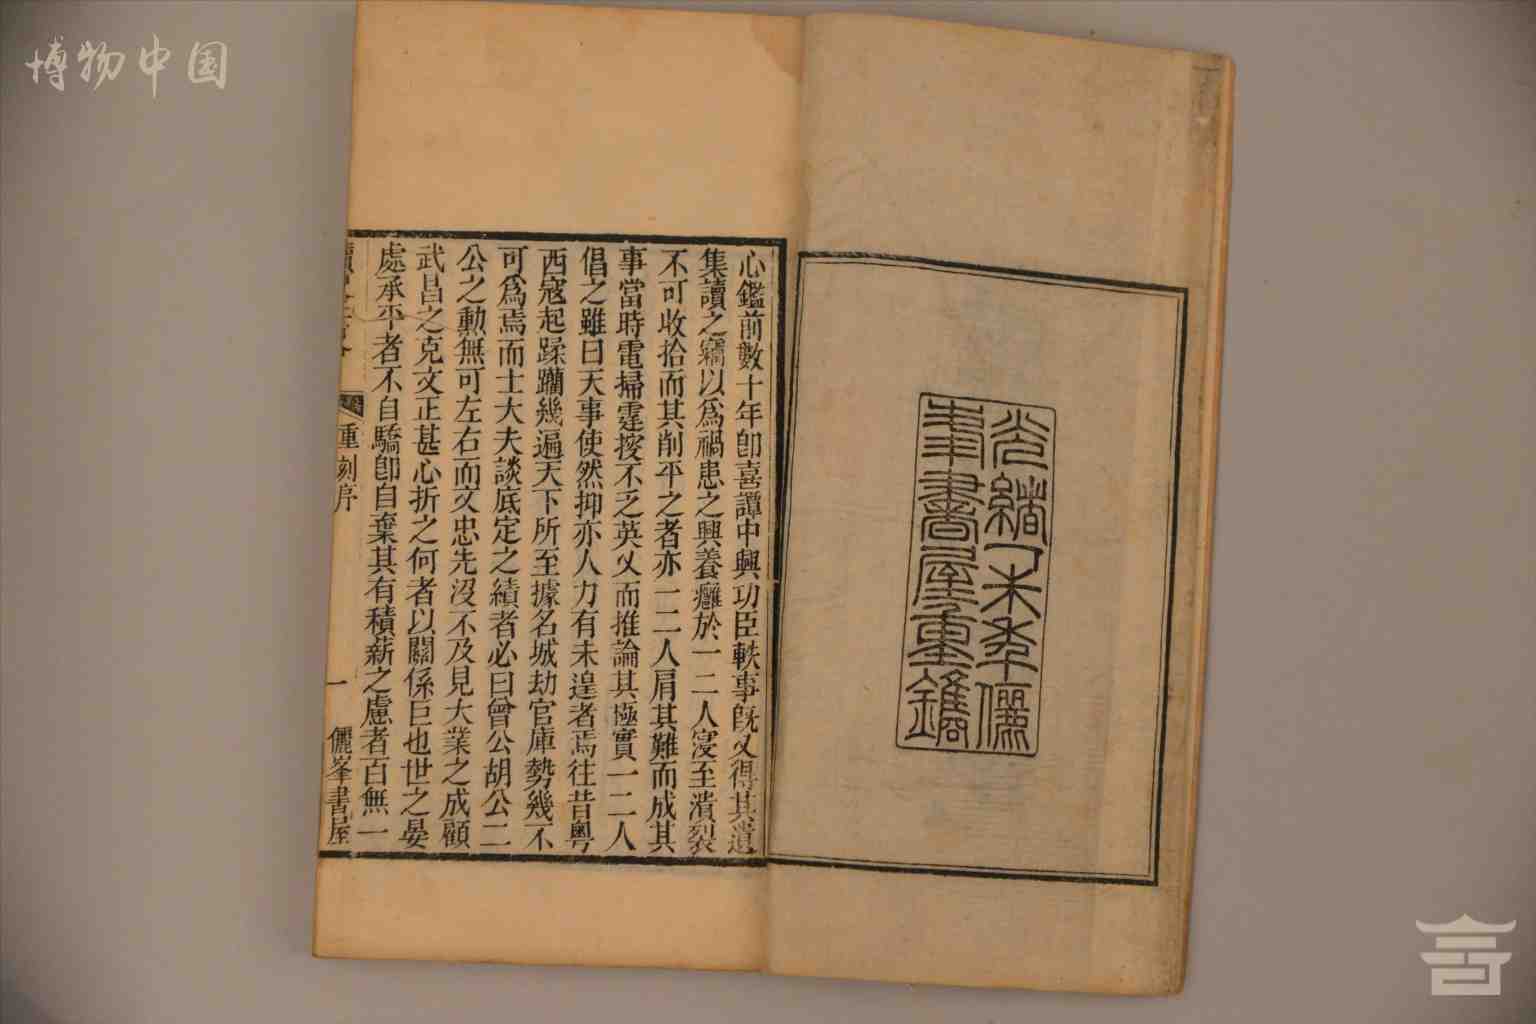 博物中国
光緒丁未年儷
峯書屋重鐫
心鑑前數十年卽喜譚中興功臣軼事旣又得其遺
集讀之竊以爲禍患之興養癰於一二人寖至潰裂
不可收拾而其削平之者亦一二人肩其難而成其
事當時電掃霆按不乏英乂而推論其極實一二人
倡之雖曰天事使然抑亦人力有未遑者焉往昔粵
西寇起蹂躪幾遍天下所至據名城劫官庫勢幾不
可爲焉而士大夫談底定之績者必曰曾公胡公二
公之勳無可左右而文忠先沒不及見大業之成顧
武昌之克文正甚心折之何者以關係巨也世之晏
處承平者不自驕卽自棄其有積薪之慮者百無一
重刻序
一
儷峯書屋